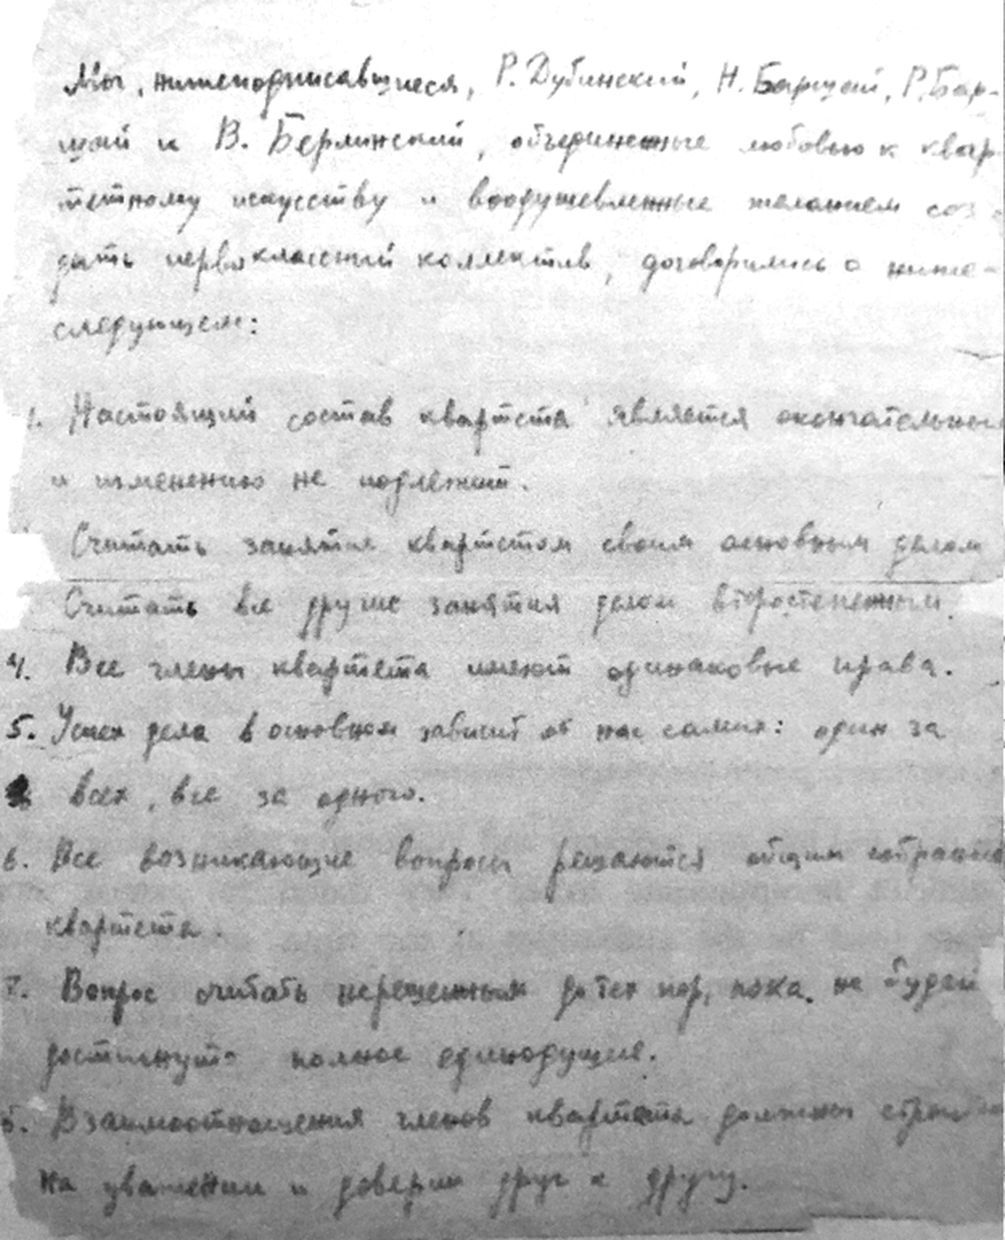 Мы, нижеподписавшиеся, Р. Дубинский, Н. Баршай, Р. Бар-
шай и В. Берлинский, объединенные любовью к квар-
тетному искусству и воодушевленные желанием соз
дать первоклассный коллектив, договорились о ниже-
следующем:
1. Настоящий состав квартета является окончательным
и изменению не подлежит.
Считать занятия квартетом своим основным делом
Считать все другие занятия делом второстепенным.
4. Все члены квартета имеют одинаковые права.
5. Успех дела в основном зависит от нас самих: один за
всех, все за одного.
6. Все возникающие вопросы решаются общим собрание
квартета.
7. Вопрос считать нерешенным до тех пор, пока не будет
достигнуто полное единодушие.
8. Взаимоотношения членов квартета должны строи
на уважении и доверии друг к другу.